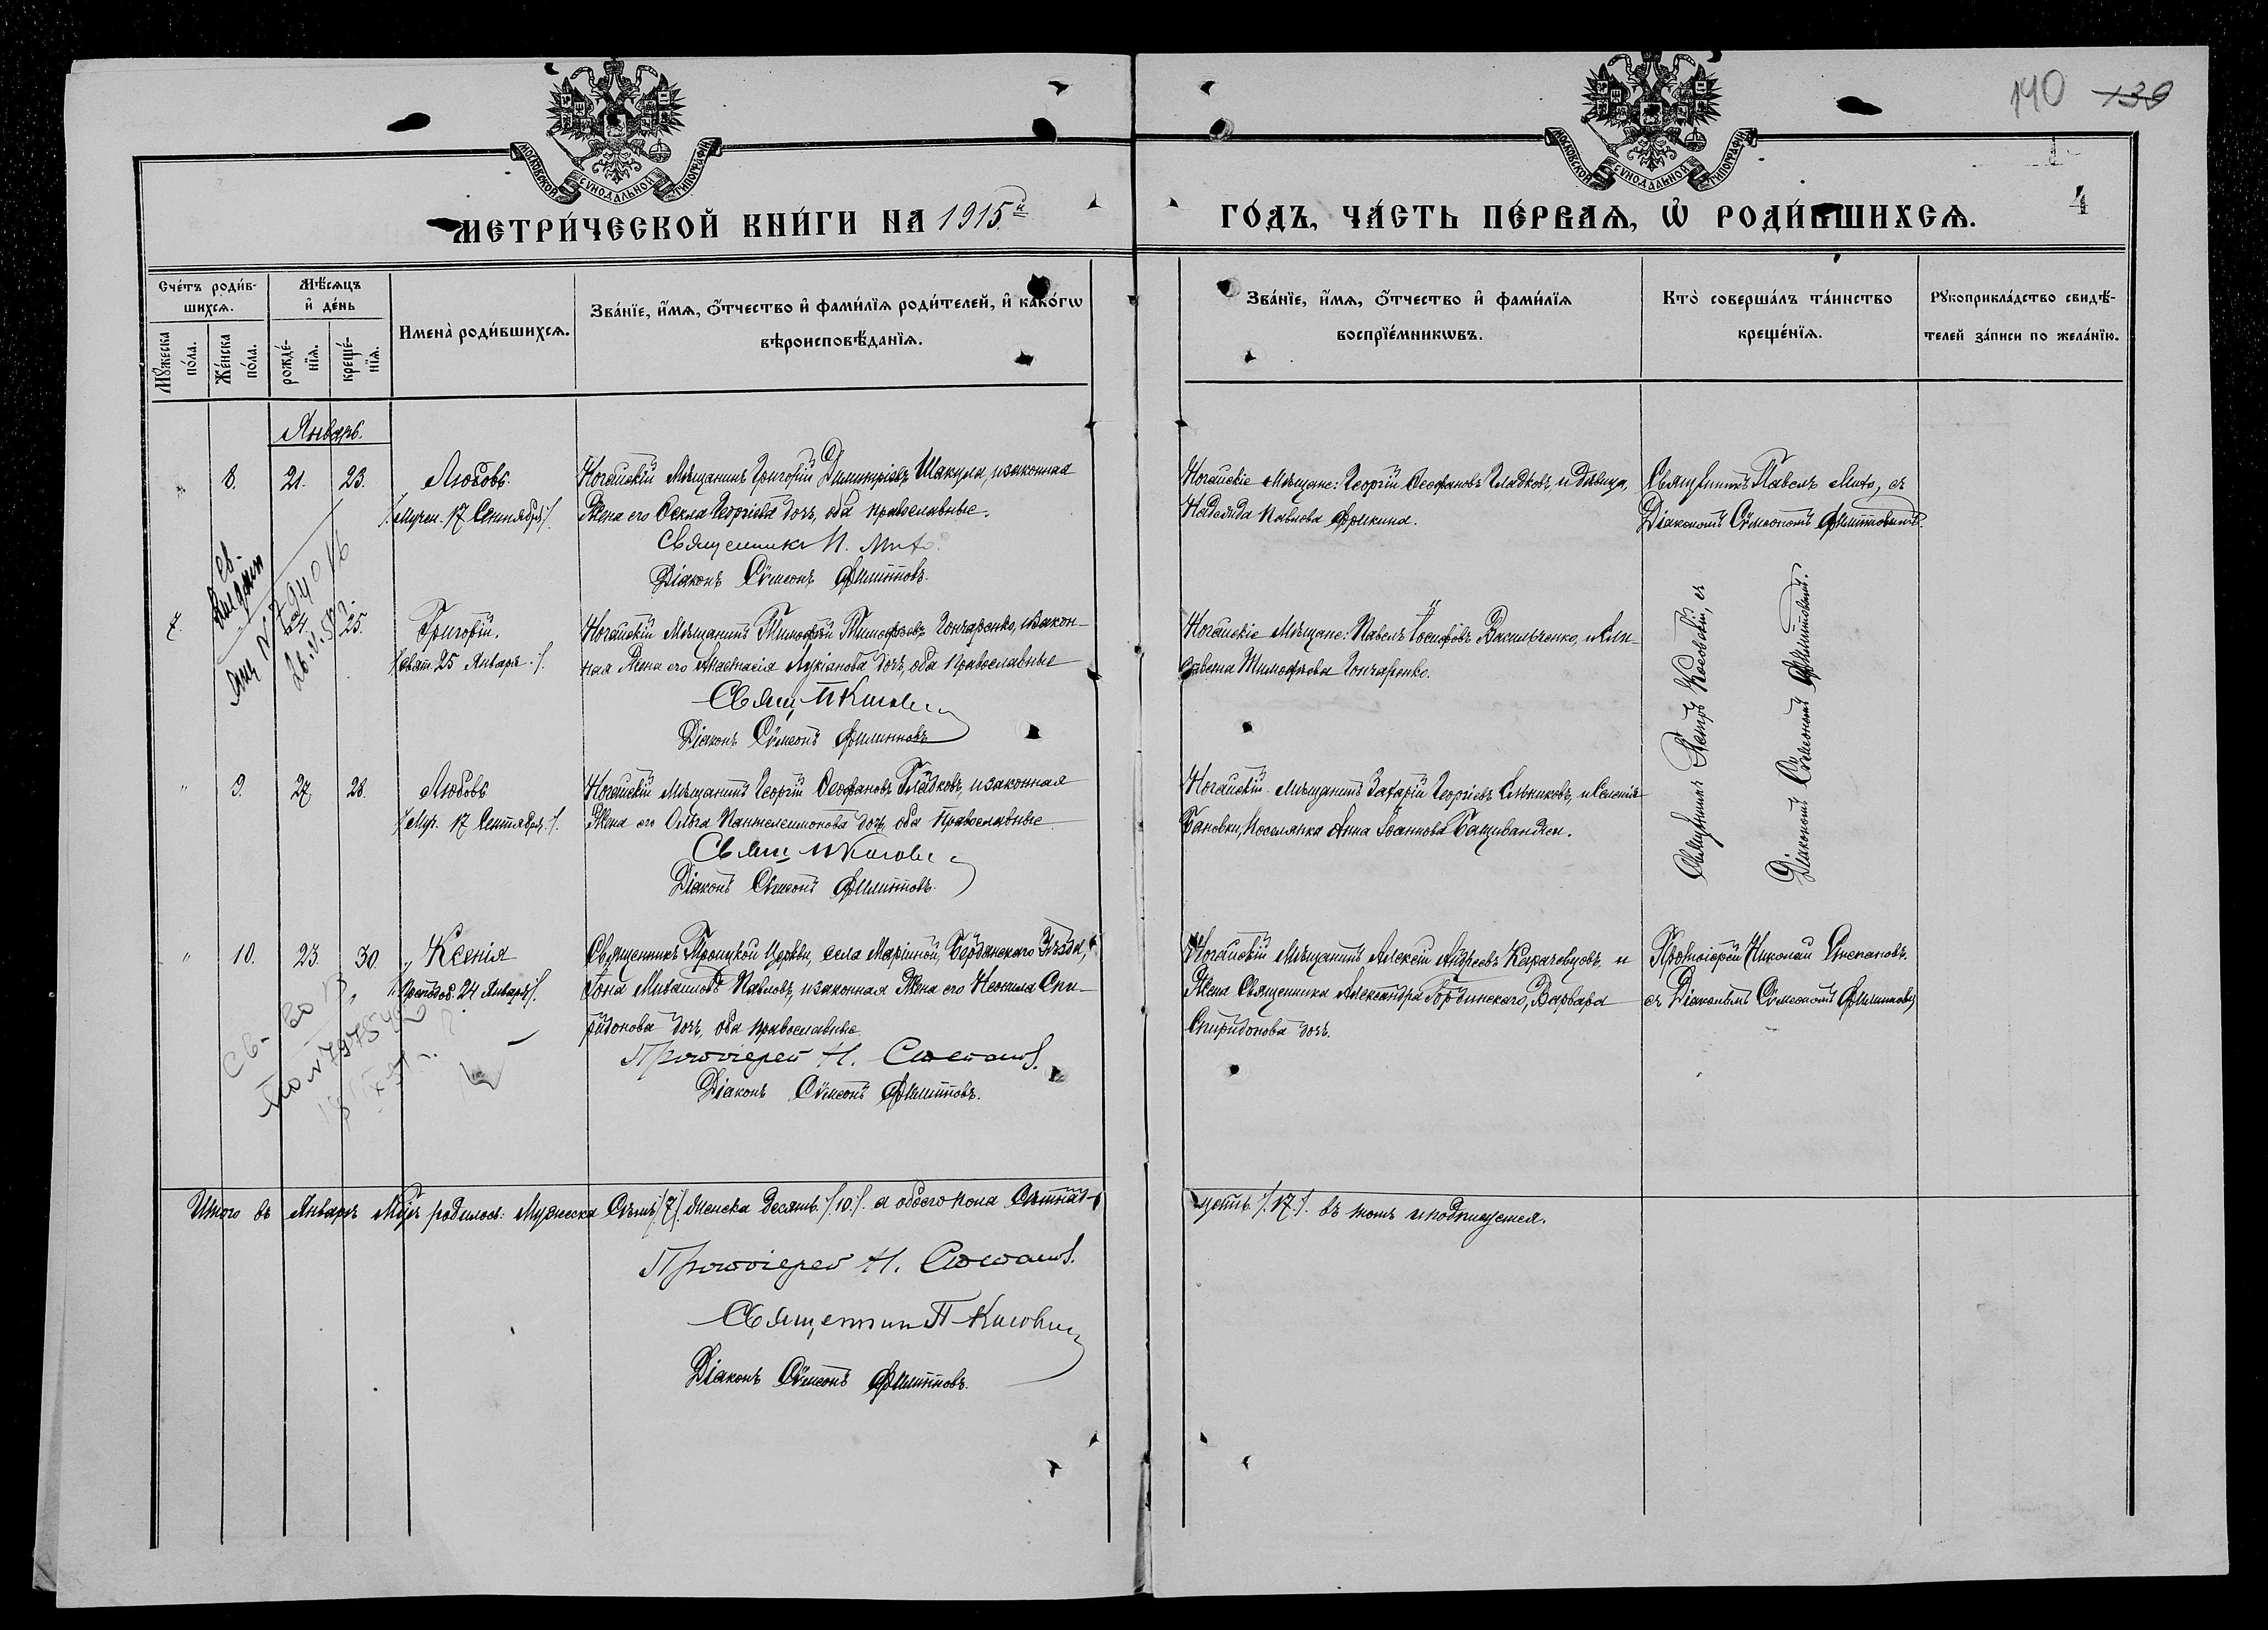 140 139
4
МОСКОВСКОЙ СУНОДАЛЬНОЙ ТИПОГРАФІИ
МОСКОВСКОЙ СУНОДАЛЬНОЙ ТИПОГРАФІИ
МЕТРИ́ЧЕСКОЙ КНИ́ГИ НА 1915й
ГО́ДЪ, ЧА́СТЬ ПЕ́РВАѦ, Ѡ҆ РОДИ́ВШИХСѦ.
Сче́тъ роди́в-
шихсѧ.
Мѣ́сѧцъ
и҆ де́нь
Мꙋ́жеска
по́ла.
Же́нска
по́ла.
рожде́-
нїѧ.
креще́-
нїѧ.
Имена̀ роди́вшихсѧ.
Зва́нїе, и҆́мѧ, ѻ҆́тчество и҆ фами́лїѧ роди́телей, и҆ како́гѡ
вѣроисповѣ́данїѧ.
Зва́нїе, и҆́мѧ, ѻ҆́тчество и҆ фами́лїѧ
воспрїе́мникѡвъ.
Кто̀ соверша́лъ та́инство
креще́нїѧ.
Рꙋкоприкла́дство свидѣ́-
телей за́писи по жела́нїю.
Январь.
8. 21. 23. Любовь.
/. Мучен. 17 Сентября /.
Ногайскій Мѣщанинъ Григорій Димитріевъ Шакула, и законная
Жена его Ѳекла Георгіева дочь, оба православные.
Священникъ П. Мито.
Діаконъ Сѵмеонъ Филипповъ.
Ногайскіе Мѣщане: Георгій Ѳеофановъ Гладковъ, и дѣвица,
Надежда Павлова Фрикина.
Священникъ Павелъ Мито, съ
Діакономъ Сѵмеономъ Филипповымъ.
7. 24. 25. Григорій.
/. Свят. 25 Января ./.
Ногайскій Мѣщанинъ Тимофѣй Тимофѣевъ Гончаренко, и закон-
ная Жена его Анастасія Лукіанова дочь, оба Православные
Свящ
Діаконъ Сѵмеонъ Филипповъ
Ногайскіе Мѣщане: Павелъ Іосифовъ Васильченко, и Ели-
савета Тимофѣева Гончаренко.
Священникъ Петръ съ
Діакономъ Сѵмеономъ Филипповымъ.
" 9. 27. 28. Любовь
/. Муч. 17 Сентября ./.
Ногайскій Мѣщанинъ Георгій Ѳеофановъ Гладковъ, и законная
Жена его Ольга Пантелеимонова дочь, оба Православные
Свящ
Діаконъ Сѵмеонъ Филипповъ.
Ногайскій Мѣщанинъ Захарій Георгіевъ и Селенія
Бановки, Поселянка Анна Іоаннова
" 10. 23. 30. Ксенія
/. Преподоб. 24 Января /.
Священникъ Троицкой Церкви, села Маріиной, Бердянскаго Уѣзда,
Іона Михаиловъ Павловъ, и законная Жена его Неонила Спи-
ридонова дочь, оба православные.
Протоіерей Н. Степановъ.
Діаконъ Сѵмеонъ Филипповъ.
Ногайскій Мѣщанинъ Алексій Андреевъ Карачевцовъ, и
Жена Священника Александра Гординскаго, Варвара
Спиридонова дочь.
Протоіерей Николай Степановъ.
съ Діакономъ Сѵмеономъ Филипповымъ
Итого въ Январѣ М-цѣ родилось: Мужеска Семь /7/. Женска Десять /.10./. а обоего пола Семнад-
цать /.17./. въ томъ и подпишемся.
Протоіерей Н. Степановъ.
Священникъ П
Діаконъ Сѵмеонъ Филипповъ.